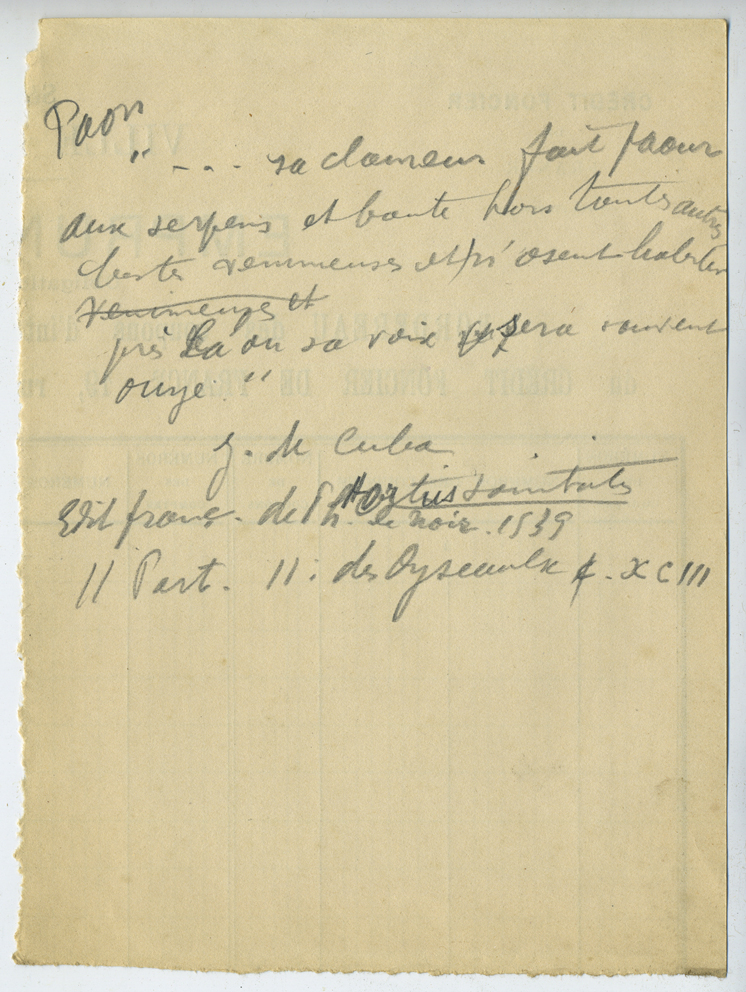 Paon
" - - . sa clameur fait paour
aux serpens et boute hors toutes autres
bestes venimeuses et n'osent habiter
venimeuses et
près La ou sa voix sera souvent
ouye. "
J. de Cuba
Hortus sanitatis
Edit franç. de Ph. le Noir. 1539
II Part. II. des Oyseaulx c. XCIII